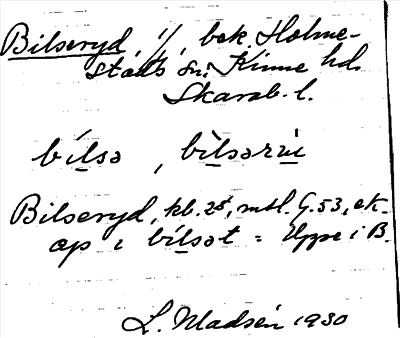 Bilseryd, 1/1, bek. Holme-
stads sn. Kinne hd.
Skarab. l.
bílsə , bìlsərùi
Bilseryd, kb. 25, mtl. G. 53, ek.
æp i bílsət = Uppe i B.
L. Madsén 1930